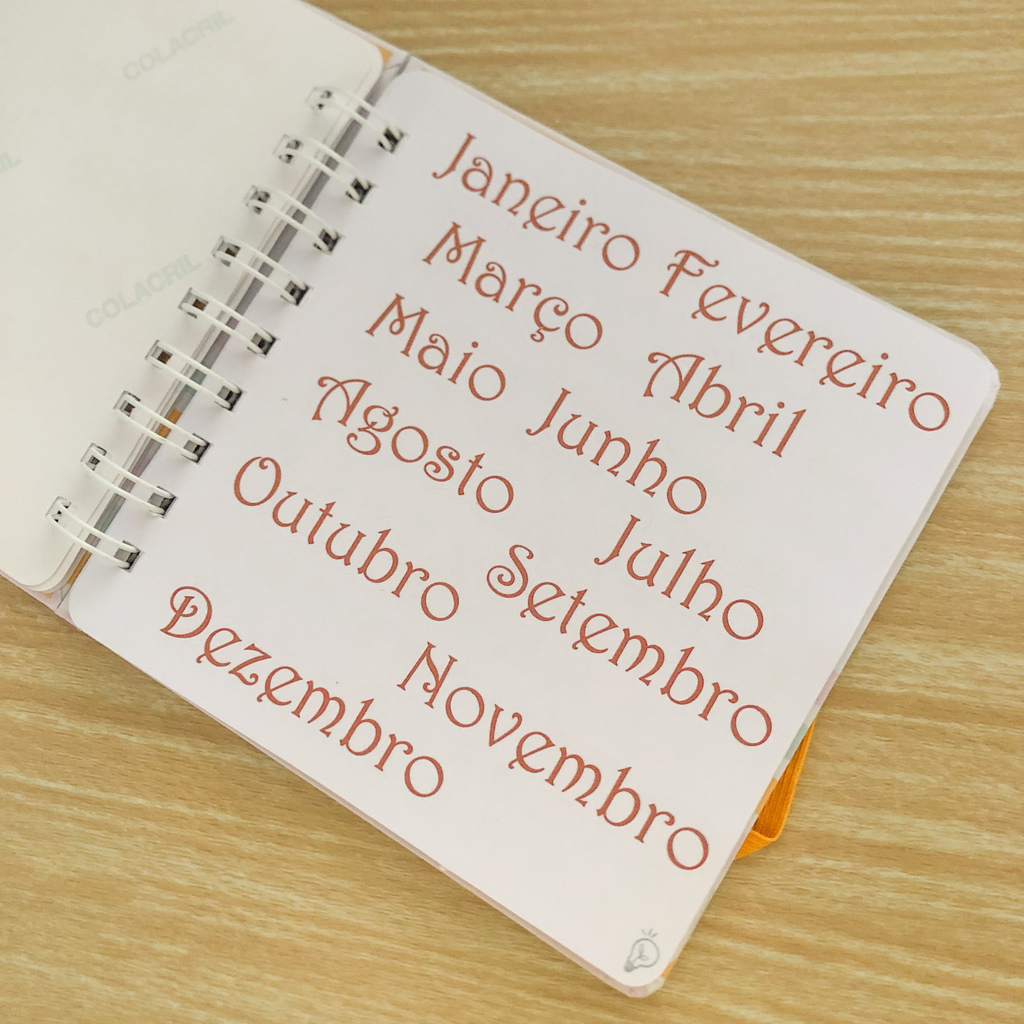 COLACRIL
COLACRIL
Janeiro Fevereiro
Março Abril
Maio Junho
Agosto Julho
Outubro Setembro
Dezembro Novembro